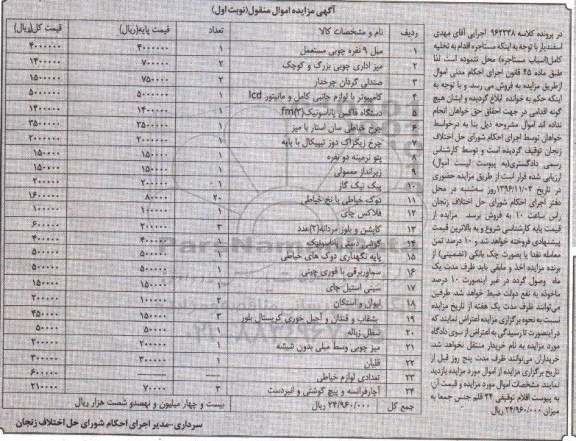 آگهی مزایده اموال منقول(نوبت اول)
در پرونده کلاسه ۹۶۲۳۳۸ اجرایی آقای مهدی
اسفندیار با توجه به اینکه مستاجره اقدام به تخلیه
کامل(اسباب مستاجره) محل ننموده است لذا
طبق ماده ۴۵ قانون اجرای احکام مدنی اموال
ازطریق مزایده به فروش می رسد و با توجه به
اینکه حکم به خوانده ابلاغ گردیده و ایشان هیچ
گونه اقدامی در جهت احقاق حق خواهان انجام
نداده اند اموال مشروحه ذیل بنا به درخواست
خواهان توسط اجرای احکام شورای حل اختلاف
زنجان توقیف گردیده است و توسط کارشناس
رسمی دادگستری(به پیوست لیست اموال)
ارزیابی شده قرار است از طریق مزایده حضوری
در تاریخ ۱۳۹۶/۱۱/۰۲ روز سه‌شنبه در محل
دفتر اجرای احکام شورای حل اختلاف زنجان
راس ساعت ۱۰ به فروش برسد. مزایده از
قیمت پایه کارشناسی شروع و به بالاترین قیمت
پیشنهادی فروخته خواهد شد. و ۱۰ درصد ثمن
معامله نقدا یا بصورت چک بانکی (تضمینی) از
برنده مزایده اخذ و مابقی باید ظرف مدت یک
ماه وصول گردد در غیر اینصورت ۱۰ درصد
ماخوذه به نفع دولت ضبط خواهد شد. طرفین
می‌توانند ظرف مدت یک هفته از تاریخ مزایده
نسبت به نحوه برگزاری مزایده اعتراض نمایند که
در اینصورت تا رسیدگی به اعتراض از سوی دادگاه
مورد مزایده به نام خریدار منتقل نخواهد شد.
خریداران می‌توانند ظرف مدت پنج روز قبل از
تاریخ برگزاری مزایده از اموال مورد مزایده بازدید
نمایند. مشخصات اموال مورد مزایده و قیمت آن
به پیوست اقلام توقیفی ۲۴ قلم جنس جمعا به
میزان ۲۴/۹۶۰/۰۰۰ ریال
ردیف نام و مشخصات کالا تعداد قیمت پایه(ریال) قیمت کل(ریال)
۱ مبل ۹ نفره چوبی مستعمل ۱ ۴۰۰۰۰۰۰ ۴۰۰۰۰۰۰
۲ میز اداری چوبی بزرگ و کوچک ۲ ۷۰۰۰۰۰ ۱۴۰۰۰۰۰
۳ صندلی گردان چرخدار ۲ ۷۵۰۰۰۰ ۱۵۰۰۰۰۰
۴ کامپیوتر با لوازم جانبی کامل و مانیتور lcd ۱ ۵۰۰۰۰۰۰ ۵۰۰۰۰۰۰
۵ دستگاه فاکس پاناسونیک fm(۲) ۱ ۱۴۰۰۰۰۰ ۱۴۰۰۰۰۰
۶ چرخ خیاطی سان استار با میز ۱ ۳۵۰۰۰۰۰ ۳۵۰۰۰۰۰
۷ چرخ زیگزاگ دوز تیپیکال با پایه ۱ ۲۰۰۰۰۰۰ ۲۰۰۰۰۰۰
۸ پتو نرمینه دو نفره ۱ ۱۵۰۰۰۰ ۱۵۰۰۰۰
۹ زیرانداز معمولی ۱ ۱۵۰۰۰۰ ۱۵۰۰۰۰
۱۰ پیک نیک گاز ۱ ۲۰۰۰۰۰ ۲۰۰۰۰۰
۱۱ دوک خیاطی با نخ خیاطی ۲۰ ۸۰۰۰۰ ۱۶۰۰۰۰۰
۱۲ فلاکس چای ۱ ۱۰۰۰۰۰ ۱۰۰۰۰۰
۱۳ کاپشن و بلوز مردانه(۲)عدد ۳ ۲۰۰۰۰۰ ۶۰۰۰۰۰
۱۴ گوشی دستی پاناسونیک ۱ ۴۰۰۰۰۰ ۴۰۰۰۰۰
۱۵ پایه نگهداری دوک های خیاطی ۱
۱۶ سماوربرقی با قوری چینی ۱
۱۷ سینی استیل چای ۱
۱۸ لیوان و استکان ۲ ۱۰۰۰۰۰ ۲۰۰۰۰۰
۱۹ بشقاب و قندان و آجیل خوری کریستال بلور ۳ ۱۵۰۰۰۰ ۴۵۰۰۰۰
۲۰ سطل زباله ۱ ۵۰۰۰۰ ۵۰۰۰۰
۲۱ میز چوبی وسط مبلی بدون شیشه ۱ ۲۰۰۰۰۰ ۲۰۰۰۰۰
۲۲ قلیان ۱ ۳۰۰۰۰۰ ۳۰۰۰۰۰
۲۳ تعدادی لوازم خیاطی ۶۰۰۰۰۰
۲۴ آچارفرانسه و پیچ گوشتی و انبردست ۳ ۷۰۰۰۰ ۲۱۰۰۰۰
جمع کل ۲۴/۹۶۰/۰۰۰ ریال بیست و چهار میلیون و نهصدو شصت هزار ریال
سرداری -مدیر اجرای احکام شورای حل اختلاف زنجان